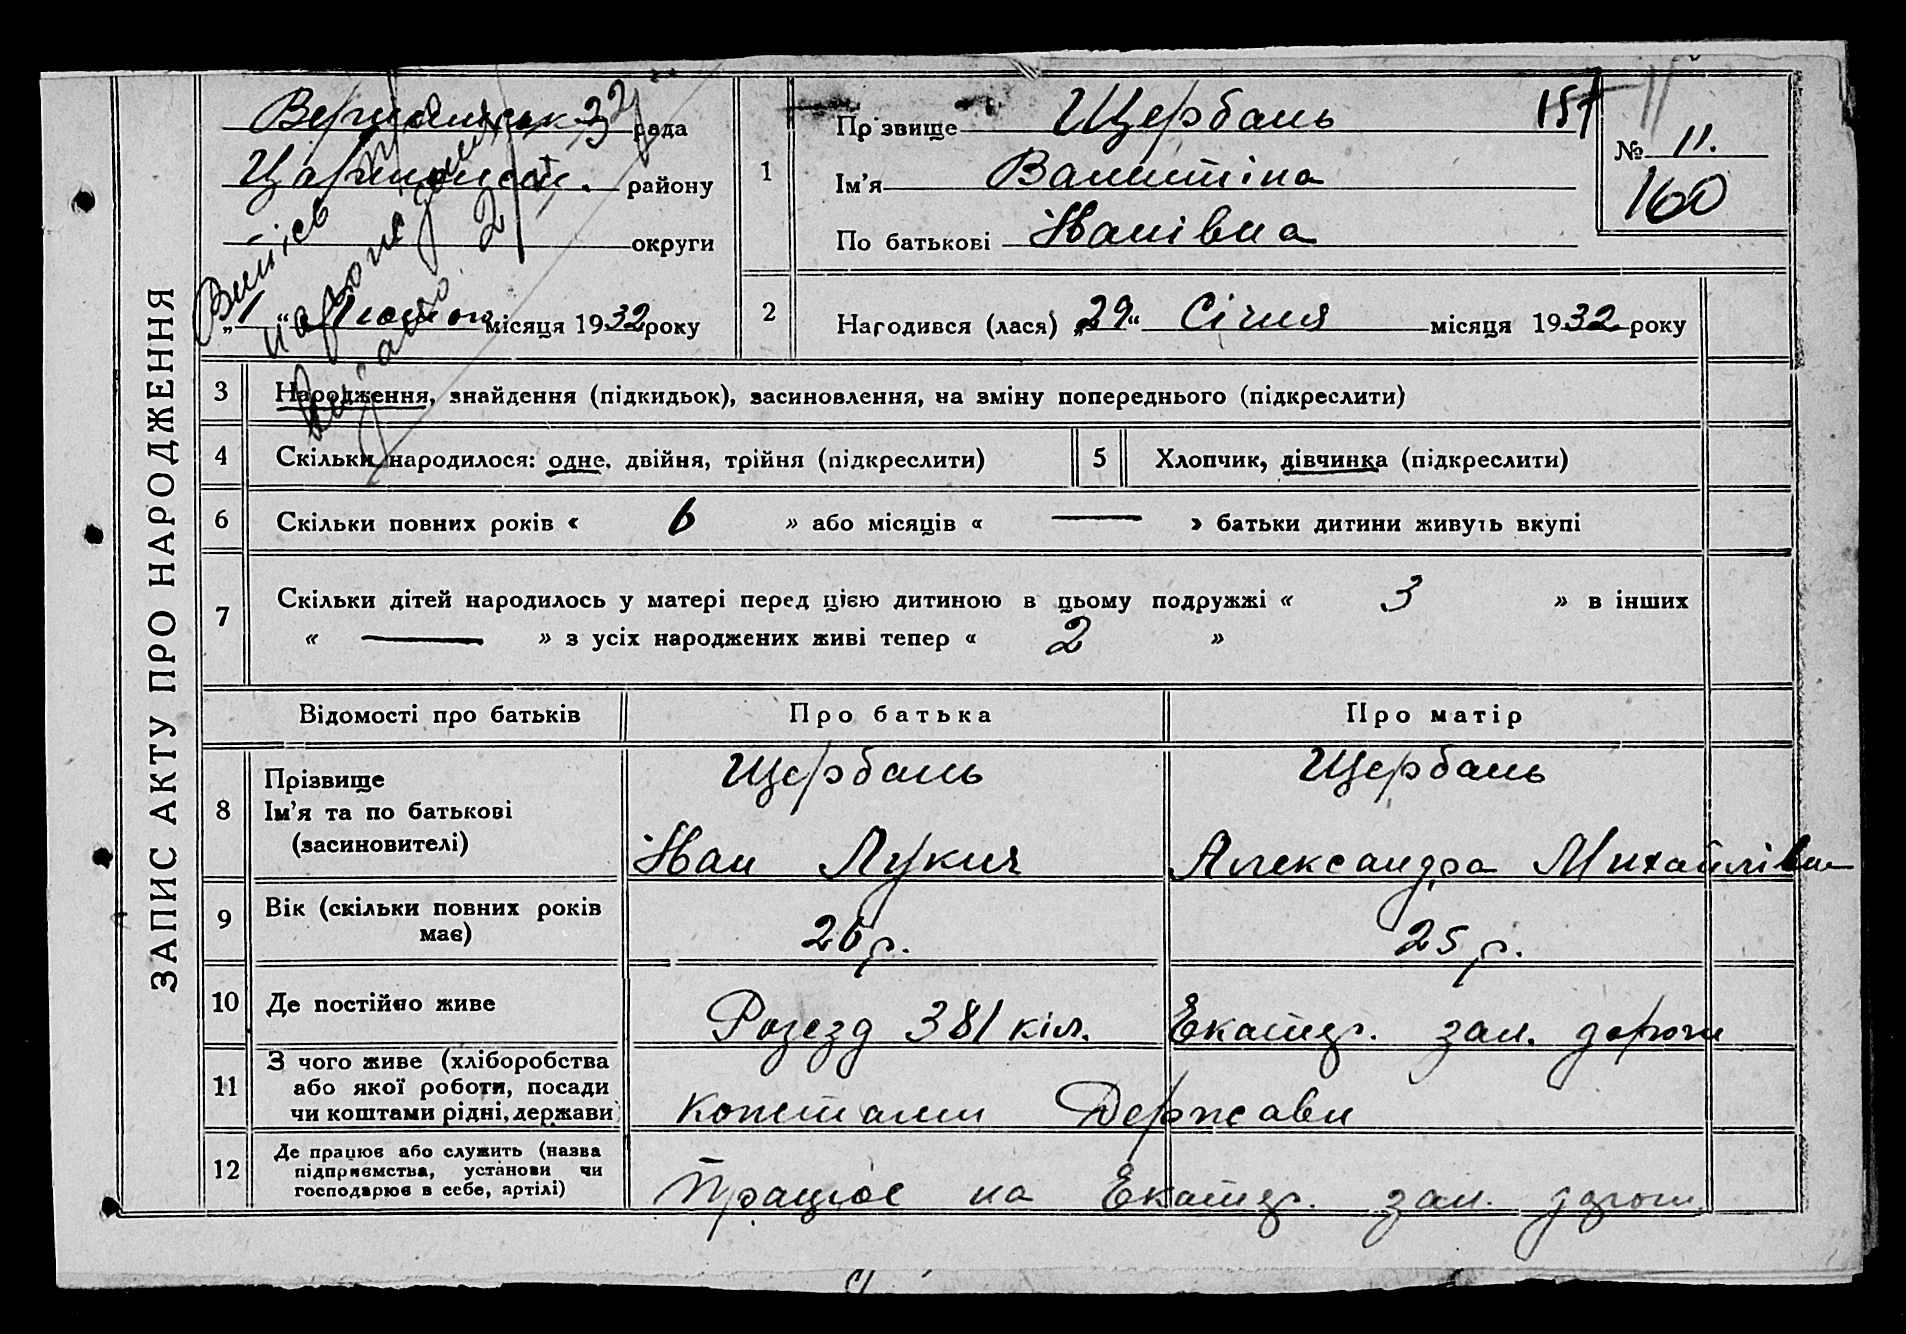 ЗАПИС АКТУ ПРО НАРОДЖЕННЯ
рада
району
округи
Витяг
„1“ Лютого місяця 1932 року
1
Прізвище Щербань
Ім'я Валентіна
По батькові Іванівна
157
№ 11.
160
2
Народився (лася) „29“ Січня місяця 1932 року
3 Народження, знайдення (підкидьок), засиновлення, на зміну попереднього (підкреслити)
4 Скільки народилося: одне, двійня, трійня (підкреслити)
5 Хлопчик, дівчинка (підкреслити)
6 Скільки повних років « 6 » або місяців « — » батьки дитини живуть вкупі
7 Скільки дітей народилось у матері перед цією дитиною в цьому подружжі « 3 » в інших
« — » з усіх народжених живі тепер « 2 »
Відомості про батьків Про батька Про матір
8 Прізвище
Ім'я та по батькові
(засиновителі)
Щербань
Іван Лукич
Щербань
Александра Михайлівна
9 Вік (скільки повних років
має)
26 р.
25 р.
10 Де постійно живе
Розезд 381 кіл. Екатер. зал. дороги
11 З чого живе (хліборобства
або якої роботи, посади
чи коштами рідні, держави)
Коштами Держави
12 Де працює або служить (назва
підприємства, установи чи
господарює в себе, артілі)
Працює на Екатер. зал. дороги